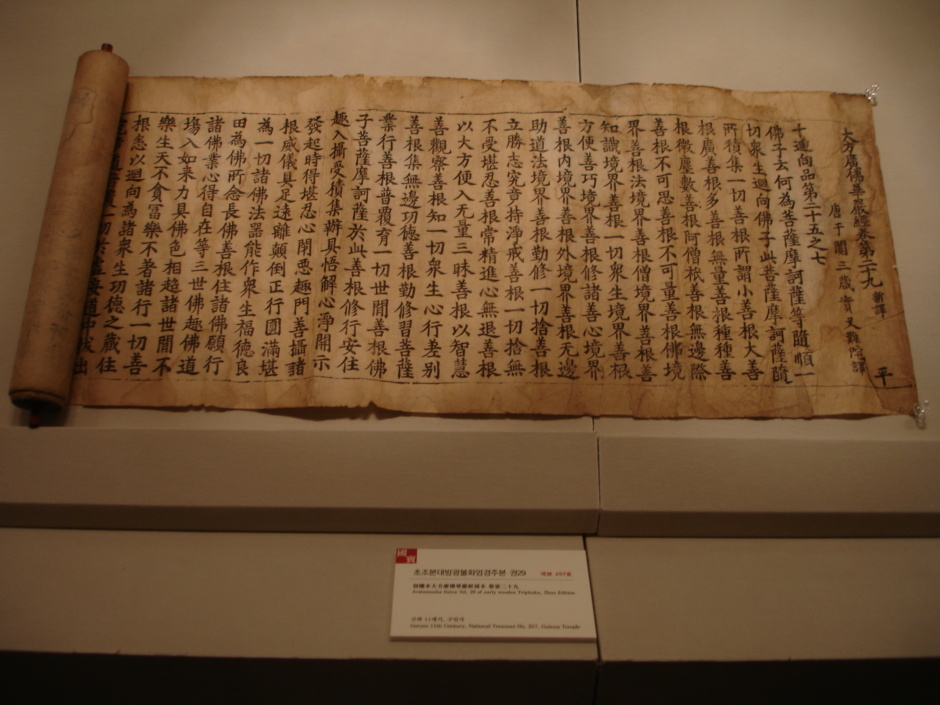 大方廣佛華嚴經卷第二十九 新譯 平
唐于闐三藏實叉難陀譯
十迴向品第二十五之七
佛子云何為菩薩摩訶薩等隨順一
切衆生迴向佛子此菩薩摩訶薩隨
所積集一切善根所謂小善根大善
根廣善根多善根無量善根種種善
根微塵數善根阿僧祇善根無邊際
善根不可思善根不可量善根佛境
界善根法境界善根僧境界善根善
知識境界善根一切衆生境界善根
方便善巧境界善根修諸善心境界
善根内境界善根外境界善根无邊
助道法境界善根勤修一切捨善根
立勝志究竟持淨戒善根一切捨無
不受堪忍善根常精進心無退善根
以大方便入无量三昧善根以智慧
善觀察善根知一切衆生心行差别
善根集無邊功德善根勤修習菩薩
業行善根普覆育一切世間善根佛
子菩薩摩訶薩於此善根修行安住
趣入攝受積集辦具悟解心淨開示
發起時得堪忍心閉惡趣門善攝諸
根威儀具足遠離顛倒正行圓滿堪
為一切諸佛法器能作衆生福德良
田為佛所念長佛善根住諸佛願行
諸佛業心得自在等三世佛趣佛道
場入如来力具佛色相超諸世間不
樂生天不貪富樂不著諸行一切善
根悉以迴向為諸衆生功德之藏住
道中拔出
國寶
초조본대방광불화엄경주본 권29 국보 257호
初雕本大方廣佛華嚴經周本 卷第二十九
Avatamsaka Sutra Vol. 29 of early wooden Tripitaka, Zhou Edition
고려 11세기, 구인사
Goryeo 11th Century, National Treasure No. 257, Guinsa Temple